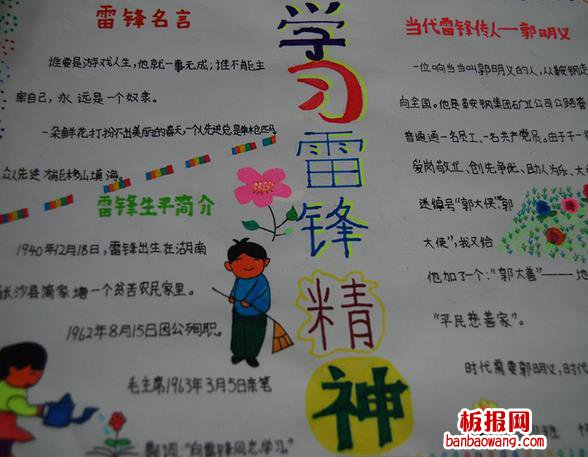 雷锋名言
谁要是游戏人生，他就一事无成；谁不能主
宰自己，永远是一个奴隶。
一朵鲜花打扮不出美丽的春天，一个人先进总是单枪匹马
众人先进才能移山填海。
雷锋生平简介
1940年12月18日，雷锋出生在湖南
长沙县简家塘一个贫苦农民家里。
1962年8月15日因公殉职。
毛主席1963年3月5日亲笔
题词："向雷锋同志学习。"
学习雷锋精神
当代雷锋传人—郭明义
一位响当当叫郭明义的人，从鞍钢走
向全国。他是鞍钢集团矿业公司公路
普通通一名员工、一名共产党员。由于千一
爱岗敬业、创先争优、助人为乐、大
送编号"郭大使"。郭
大使"，我又给
他加了一个："郭大善"——
"平民慈善家"。
时代需要郭明义，时
板报网
banbaowang.com